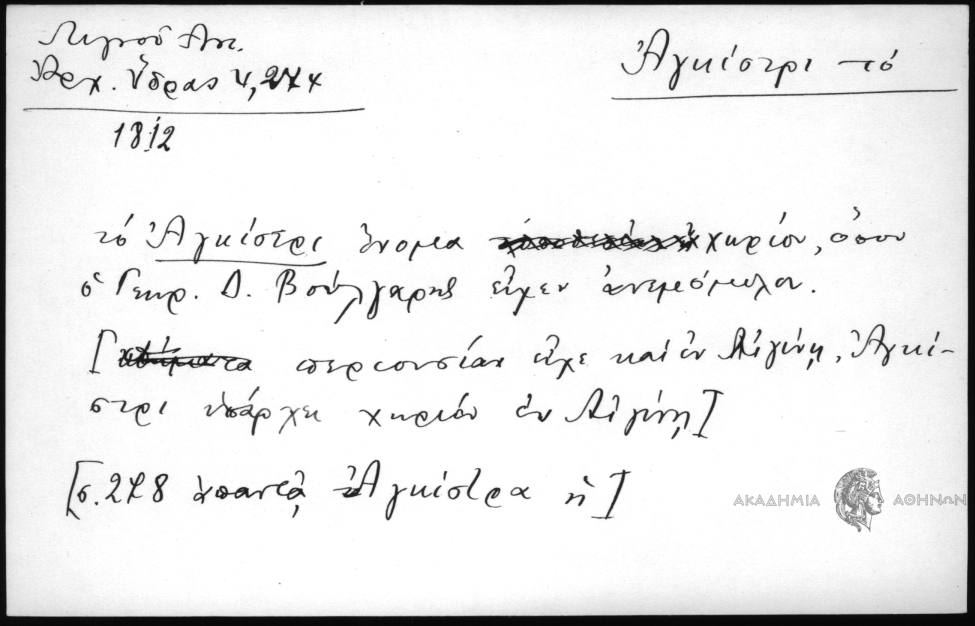 Λιγνοῦ Ἀντ.
Ἀρχ. Ὕδρας 4, 274
1812
Ἀγκίστρι τό
τό Ἀγκίστρι ὄνομα χωρίου, ὅπου
ὁ Γεωρ. Δ. Βούλγαρης εἶχεν ἀνεμόμυλον.
[περιουσίαν εἶχε καί ἐν Αἰγίνῃ, Ἀγκί-
στρι ὑπάρχει χωρίον ἐν Αἰγίνῃ]
[σ. 278 ἀπαντᾷ Ἀγκίστρα ἡ]
ΑΚΑΔΗΜΙΑ ΑΘΗΝΩΝ